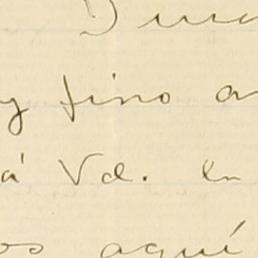 y fino a
á Vd. en
os aquí